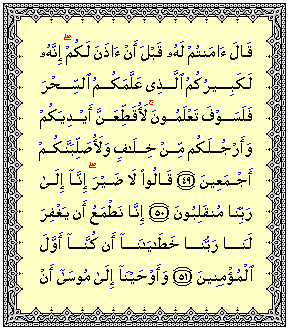 قَالَ ءَامَنتُمْ لَهُۥ قَبْلَ أَنْ ءَاذَنَ لَكُمْ ۖ إِنَّهُۥ
لَكَبِيرُكُمُ ٱلَّذِى عَلَّمَكُمُ ٱلسِّحْرَ
فَلَسَوْفَ تَعْلَمُونَ ۚ لَأُقَطِّعَنَّ أَيْدِيَكُمْ
وَأَرْجُلَكُم مِّنْ خِلَـٰفٍ وَلَأُصَلِّبَنَّكُمْ
أَجْمَعِينَ ﴿٤٩﴾ قَالُوا۟ لَا ضَيْرَ ۖ إِنَّآ إِلَىٰ
رَبِّنَا مُنقَلِبُونَ ﴿٥٠﴾ إِنَّا نَطْمَعُ أَن يَغْفِرَ
لَنَا رَبُّنَا خَطَـٰيَـٰنَآ أَن كُنَّآ أَوَّلَ
ٱلْمُؤْمِنِينَ ﴿٥١﴾ وَأَوْحَيْنَآ إِلَىٰ مُوسَىٰٓ أَنْ